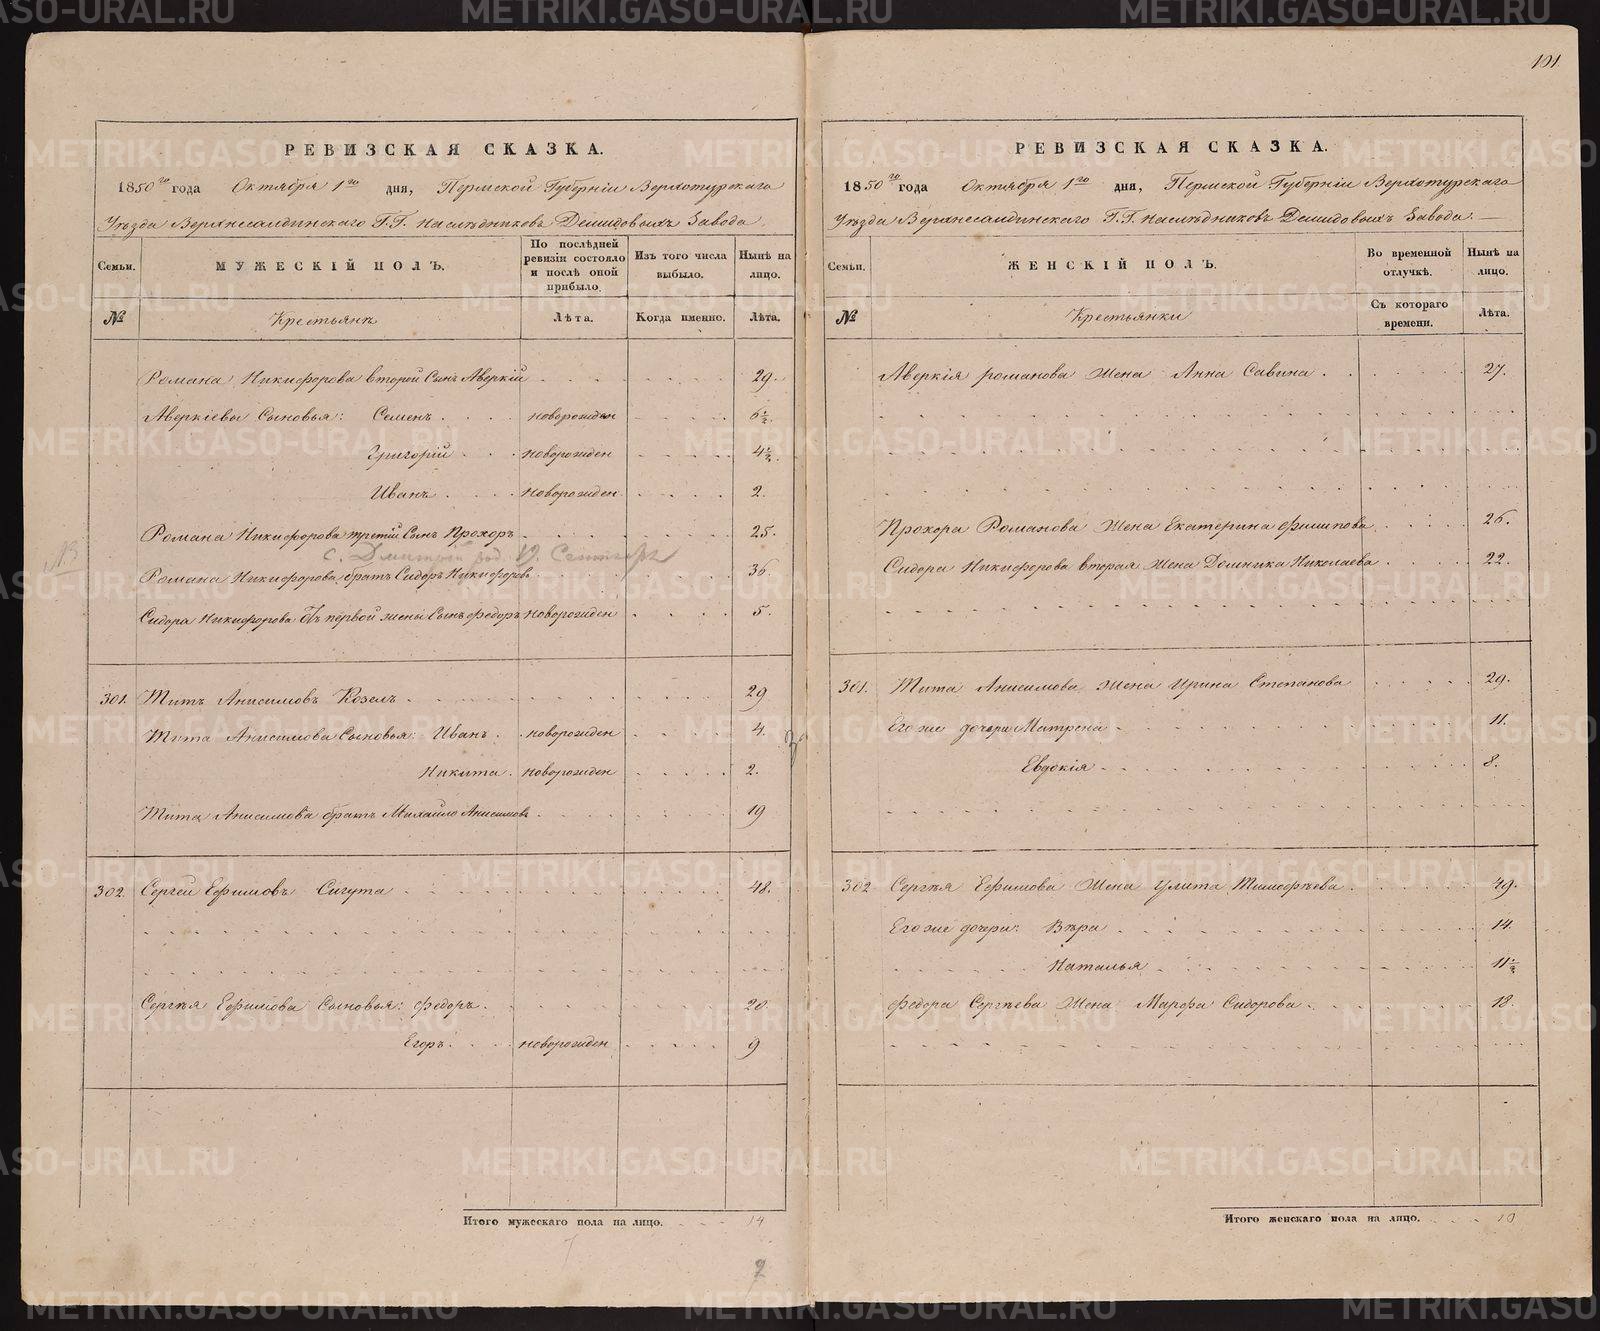 101
РЕВИЗСКАЯ СКАЗКА.
1850го года Октября 1го дня, Пермской Губерніи Верхотурскаго
Уѣзда Верхнесалдинскаго Г.Г. Наслѣдниковъ Демидовыхъ Завода.
Семьи.
МУЖЕСКІЙ ПОЛЪ.
По послѣдней ревизіи состояло и послѣ оной прибыло.
Изъ того числа выбыло.
Нынѣ на лицо.
№
Крестьянъ
Лѣта.
Когда именно.
Лѣта.
Романа Никифорова второй Сынъ Аверкій 29.
Аверкіевы Сыновья: Семенъ новорожден 6½.
Григорій новорожден 4½.
Иванъ новорожден 2.
Романа Никифорова третій Сынъ Прохоръ 25.
NB
с. Дмитрій род. 19. Сентября
Романа Никифорова братъ Сидоръ Никифоровъ 36.
Сидора Никифорова отъ первой жены Сынъ Федоръ новорожден 5.
301. Титъ Анисимовъ Козелъ 29
Тита Анисимова Сыновья: Иванъ новорожден 4.
Никита новорожден 2.
Тита Анисимова братъ Михайло Анисимовъ 19
302. Сергей Ефимовъ Сигута 48.
Сергѣя Ефимова Сыновья: Федоръ 20.
Егоръ новорожден 9
Итого мужескаго пола на лицо. 14
2
РЕВИЗСКАЯ СКАЗКА.
1850го года Октября 1го дня, Пермской Губерніи Верхотурскаго
Уѣзда Верхнесалдинскаго Г.Г. Наслѣдниковъ Демидовыхъ Завода.
Семьи.
ЖЕНСКІЙ ПОЛЪ.
Во временной отлучкѣ.
Нынѣ на лицо.
№
Крестьянки
Съ котораго времени.
Лѣта.
Аверкія романова Жена Анна Савина 27.
Прохора Романова Жена Екатерина Филипова 26.
Сидора Никифорова вторая Жена Домника Николаева 22.
301. Тита Анисимова Жена Ирина Степанова 29.
Его же дочери Матрена 11.
Евдокія 8.
302 Сергѣя Ефимова Жена Улита Тимофѣева 49.
Его же дочери: Вѣра 14.
Наталья 11½
Федора Сергѣева Жена Марфа Сидорова 18.
Итого женскаго пола на лицо. 10
METRIKI.GASO-URAL.RU